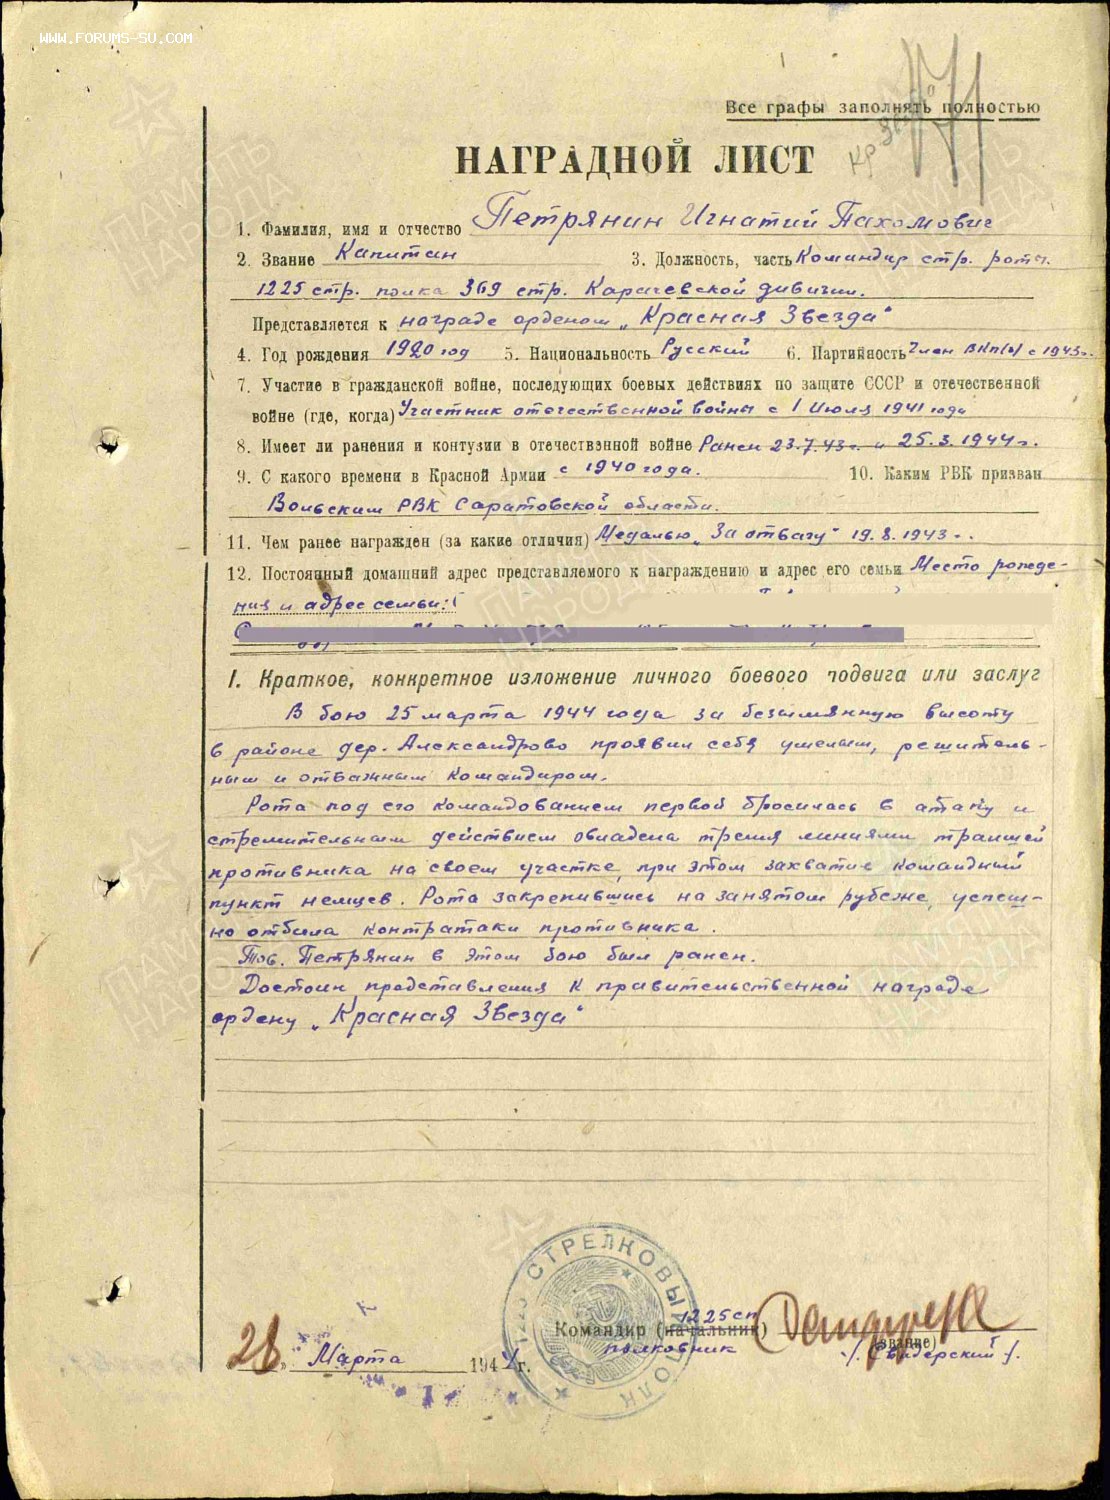 WWW.FORUMS-SU.COM
Все графы заполнять полностью
НАГРАДНОЙ ЛИСТ
1. Фамилия, имя и отчество Петрянин Игнатий Пахомович
2. Звание Капитан 3. Должность, часть Командир стр. роты.
1225 стр. полка 369 стр. Карачевской дивизии.
Представляется к награде орденом „Красная Звезда“
4. Год рождения 1920 год 5. Национальность Русский 6. Партийность Член ВКП(б) с 1943 г.
7. Участие в гражданской войне, последующих боевых действиях по защите СССР и отечественной
войне (где, когда) Участник отечественной войны с 1 Июля 1941 года
8. Имеет ли ранения и контузии в отечественной войне Ранен 23.7.43 г. и 25.3.1944 г.
9. С какого времени в Красной Армии с 1940 года. 10. Каким РВК призван
Вольским РВК Саратовской области.
11. Чем ранее награжден (за какие отличия) Медалью „За отвагу“ 19.8.1943 г.
12. Постоянный домашний адрес представляемого к награждению и адрес его семьи Место рожде-
ния и адрес семьи:
1. Краткое, конкретное изложение личного боевого подвига или заслуг
В бою 25 марта 1944 года за безымянную высоту
в районе дер. Александрово проявил себя умелым, решитель-
ным и отважным командиром.
Рота под его командованием первой бросилась в атаку и
стремительным действием овладела тремя линиями траншей
противника на своем участке, при этом захватив командный
пункт немцев. Рота закрепившись на занятом рубеже, успеш-
но отбила контратаки противника.
Тов. Петрянин в этом бою был ранен.
Достоин представления к правительственной награде
ордену „Красная Звезда“
1225 СТРЕЛКОВЫЙ ПОЛК
1225 сп
Командир (начальник)
(звание)
полковник /Свидерский/.
28 „ Марта 1944 г.
ПАМЯТЬ НАРОДА